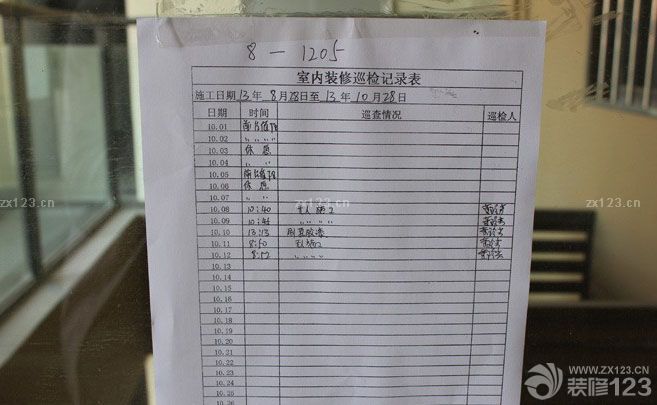 8 - 1205
室内装修巡检记录表
施工日期 13年 8月28日至 13年 10月28日
日期 时间 巡查情况 巡检人
10.01
10.02 〃 〃 〃 〃
10.03 休息
10.04 〃 〃
10.05
10.06 休息
10.07 〃 〃
10.08 10:40
10.09 10:44 〃 〃 〃 〃
10.10 13:13
10.11 8:50
10.12 8:52 〃 〃 〃 〃
10.13
10.14
10.15
10.16
10.17
10.18
10.19
10.20
10.21
10.22
10.23
10.24
10.25
10.26
zx123.cn
zx123.cn
zx123.cn
WWW.ZX123.CN
装修123